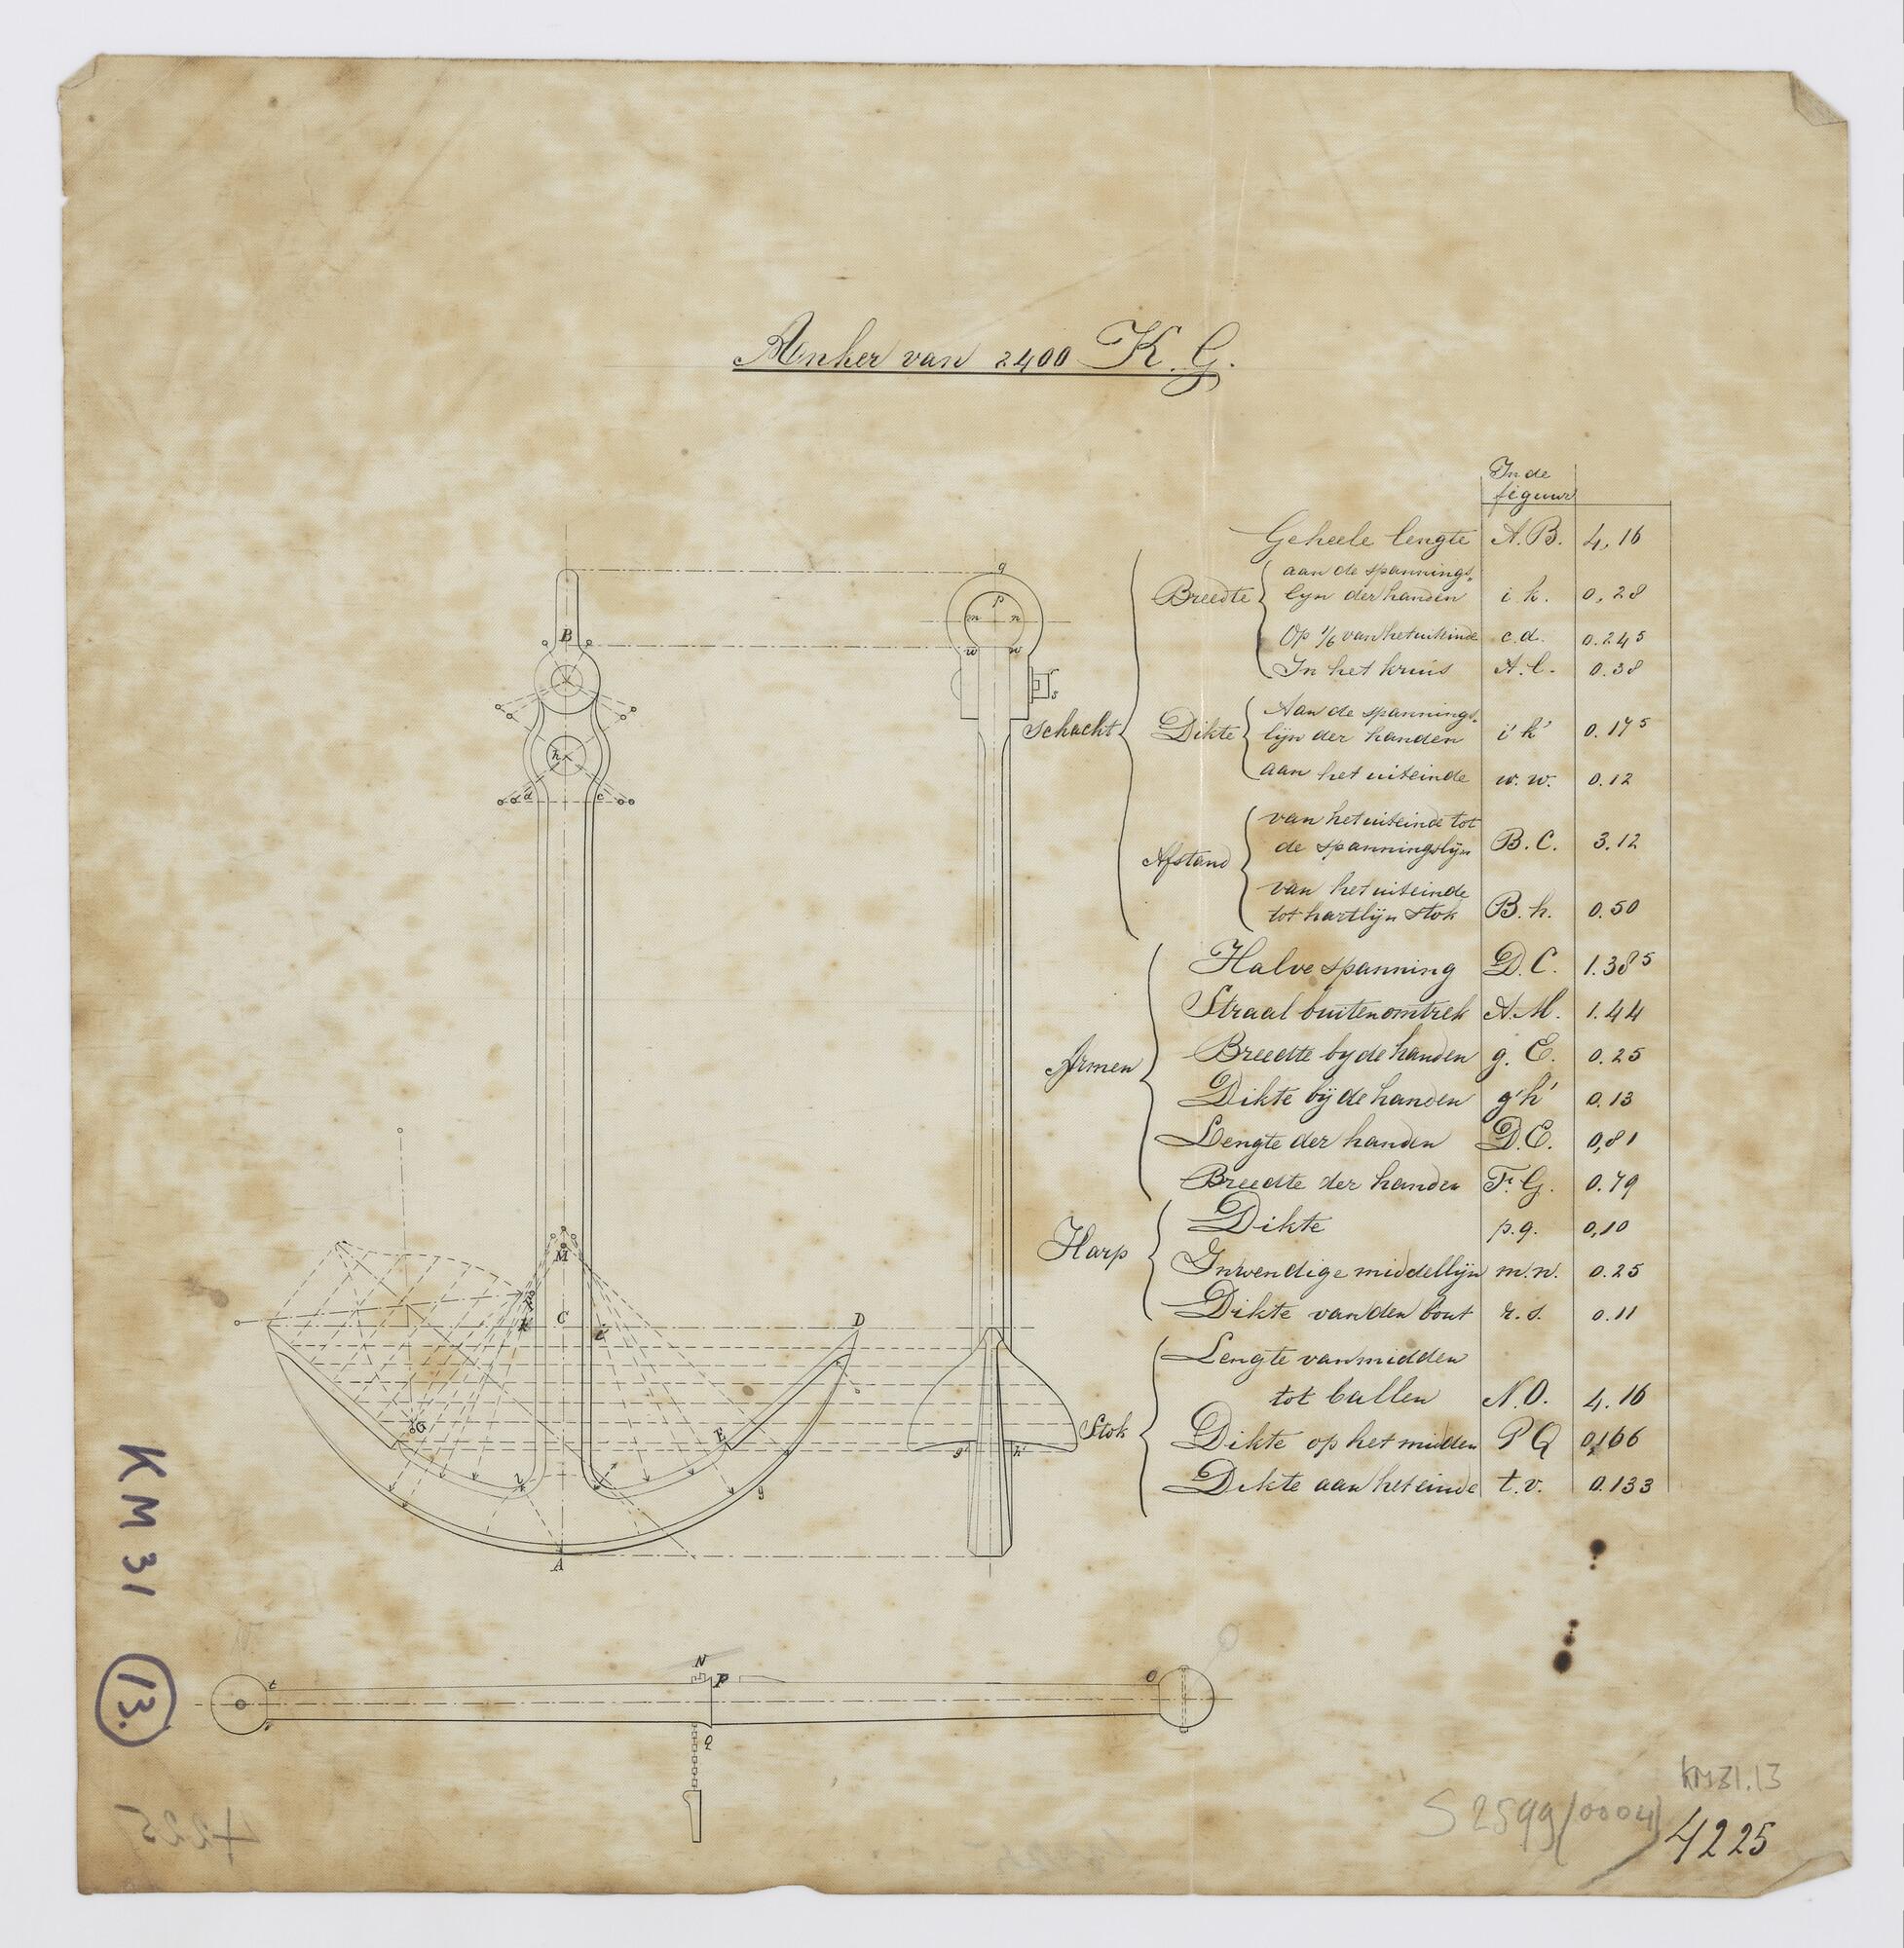 Anker van 2400 K.G.
In de
figuur
Geheele lengte A.B. 4,16
Schacht
Breedte
aan de spannings-
lijn der handen i k. 0,28
Op 1/6 van het uiteinde c.d. 0.245
In het kruis A.l. 0.38
Dikte
Aan de spannings-
lijn der handen i' k' 0.175
aan het uiteinde w.w. 0.12
Afstand
van het uiteinde tot
de spanningslijn B.C. 3.12
van het uiteinde
tot hartlijn stok B.h. 0.50
Armen
Halve spanning D.C. 1.385
Straal buitenomtrek A.M. 1.44
Breedte by de handen g.E. 0.25
Dikte bij de handen g'h' 0.13
Lengte der handen D.E. 0,81
Breedte der handen F.G. 0.79
Harp
Dikte p.q. 0,10
Inwendige middellijn m.n. 0.25
Dikte van den bout r.s. 0.11
Stok
Lengte van midden
tot ballen N.O. 4.16
Dikte op het midden P Q 0,166
Dikte aan het einde t.v. 0.133
q
p
m n
w w
s
B
h
d c
M
k C i
D
G
E
l
g
A
g' h'
N
P
t
O
Q
KM 31
13.
4225
KM31.13
S 2599/(0004)
4225